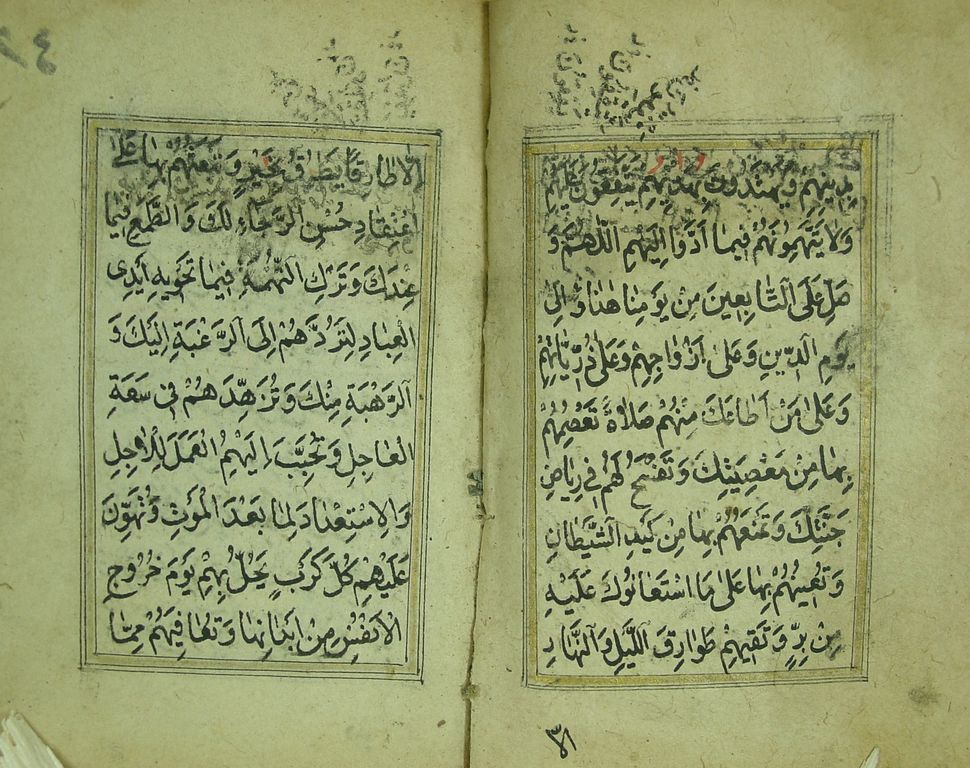 بدينهم ويهتدون بهديهم يتفقون عليهم
ولا يتهمونهم فيما ادوا اليهم اللهم و
صل على التابعين من يومنا هذا والى
يوم الدين وعلى ازواجهم وعلى ذرياتهم
وعلى من اطاعك منهم صلاة تعصمهم
بها من معصيتك وتفسح لهم في رياض
جنتك وتمنعهم بها من كيد الشيطان
وتعينهم بها على ما استعانوك عليه
من بر وتقيهم طوارق الليل والنهار
الا طارقا يطرق بخير وتبعثهم بها على
اعتقاد حسن الرجاء لك والطمع فيما
عندك وترك التهمة فيما تحويه ايدى
العباد لتردهم الى الرغبة اليك و
الرهبة منك وتزهدهم في سعة
العاجل وتحبب اليهم العمل للاجل
والاستعداد لما بعد الموت وتهون
عليهم كل كرب يحل بهم يوم خروج
الانفس من ابدانها وتعافيهم مما